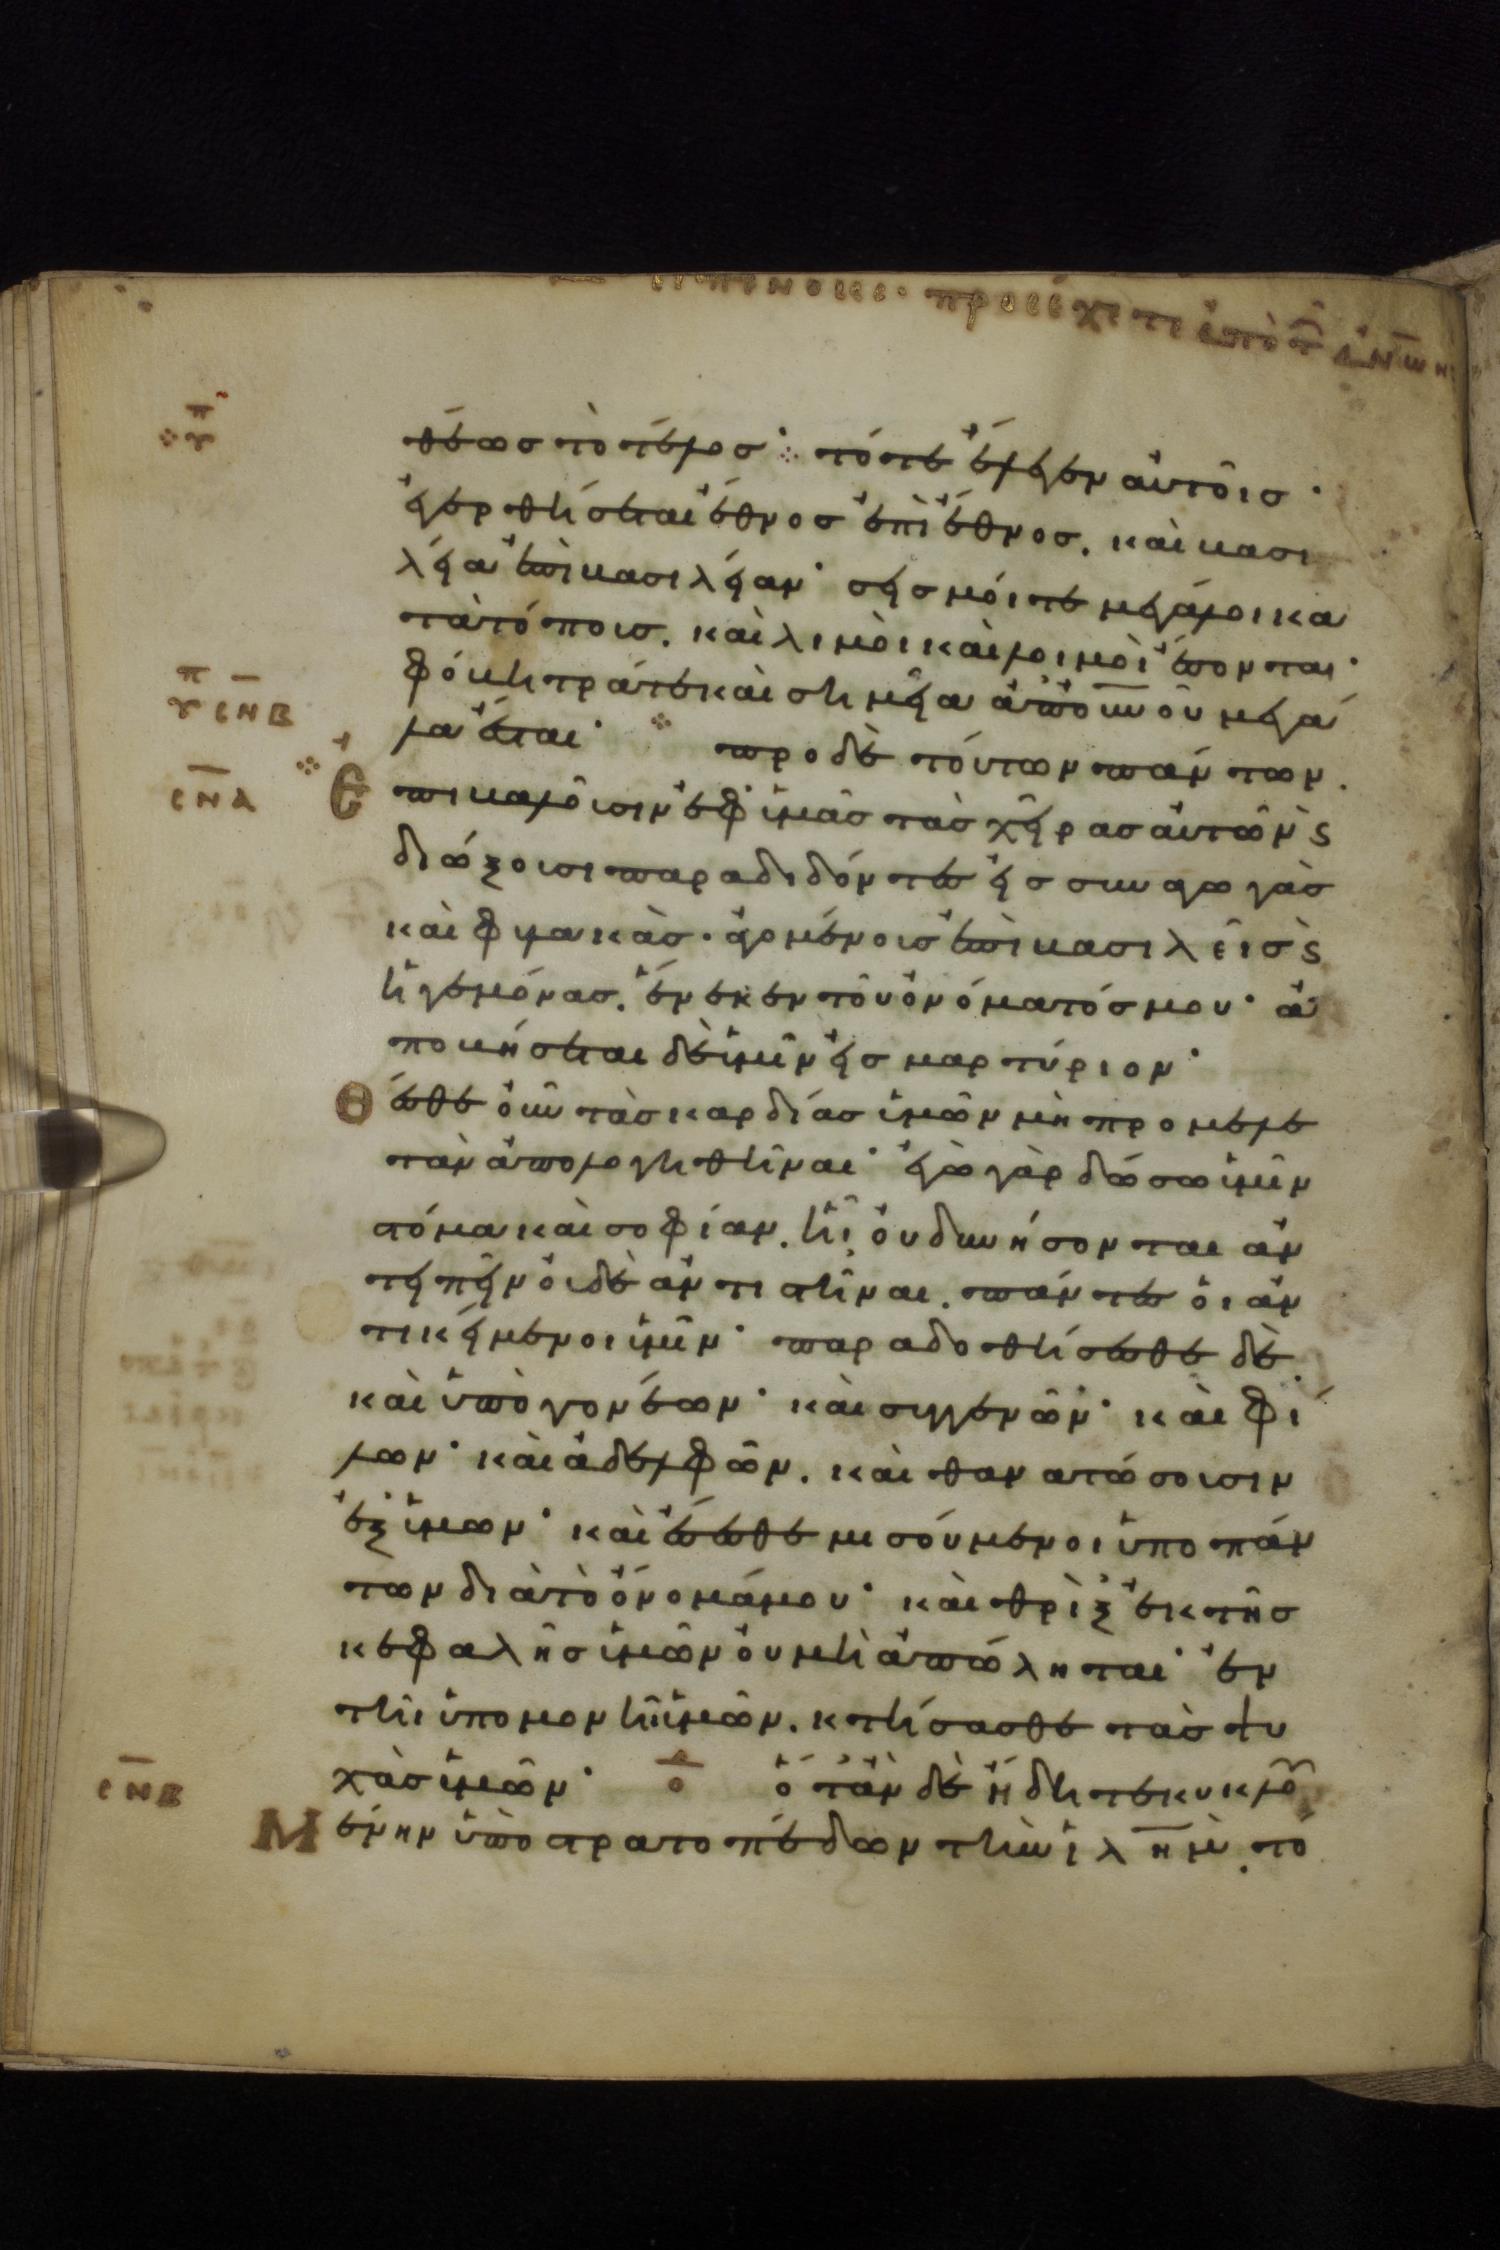 προσέχετε ἀπὸ τ ἀνων
θέως τὸ τέλος· τότε ἔλεγεν αὐτοῖς·
ἐγερθήσεται ἔθνος ἐπὶ ἔθνος. καὶ βασι
λεία ἐπὶ βασιλείαν· σεισμοί τε μεγάλοι κα
τὰ τόποις. καὶ λιμοὶ καὶ λοιμοὶ ἔσονται·
φόβητρά τε καὶ σημεῖα ἀπὸ οὐνοῦ μεγά
λα ἔσται· προ δὲ τούτων πάντων.
Ἐπιβαλοῦσιν ἐφ ὑμᾶς τὰς χεῖρας αὐτῶν ϛ
διώξουσι παραδιδόντες εἰς συναγωγὰς
καὶ φυλακὰς· ἀγομένους ἐπὶ βασιλεῖς ϛ
ἡγεμόνας. ἕνεκεν τοῦ ὀνόματός μου· ἀ
ποβήσεται δὲ ὑμῖν εἰς μαρτύριον·
Θέσθε οὖν τὰς καρδίας ὑμῶν μὴ προμελε
τᾶν ἀπολογηθῆναι· ἐγὼ γὰρ δώσω ὑμῖν
στόμα καὶ σοφίαν. ἧι οὐ δυνήσονται ἀν
τειπεῖν οὐδὲ ἀντιστῆναι. πάντες οἱ ἀν
τικείμενοι ὑμῖν· παραδοθήσεσθε δὲ
καὶ ὑπὸ γονέων· καὶ συγγενῶν· καὶ φί
λων· καὶ ἀδελφῶν. καὶ θανατώσουσιν
ἐξ ὑμῶν· καὶ ἔσεσθε μισούμενοι ὑπο πάν
των διὰ τὸ ὄνομά μου· καὶ θρὶξ ἐκ τῆς
κεφαλῆς ὑμῶν οὐ μὴ ἀπώληται· ἐν
τῆι ὑπομονῆι ὑμῶν. κτήσασθε τὰς ψυ
χὰς ὑμῶν· ὅταν δὲ ἤδητε κυκλου
Μένην ὑπὸ στρατοπέδων τὴν ἱλημ. τό
π γ
π γ ϲνβ
ϲνα
ϲνβ